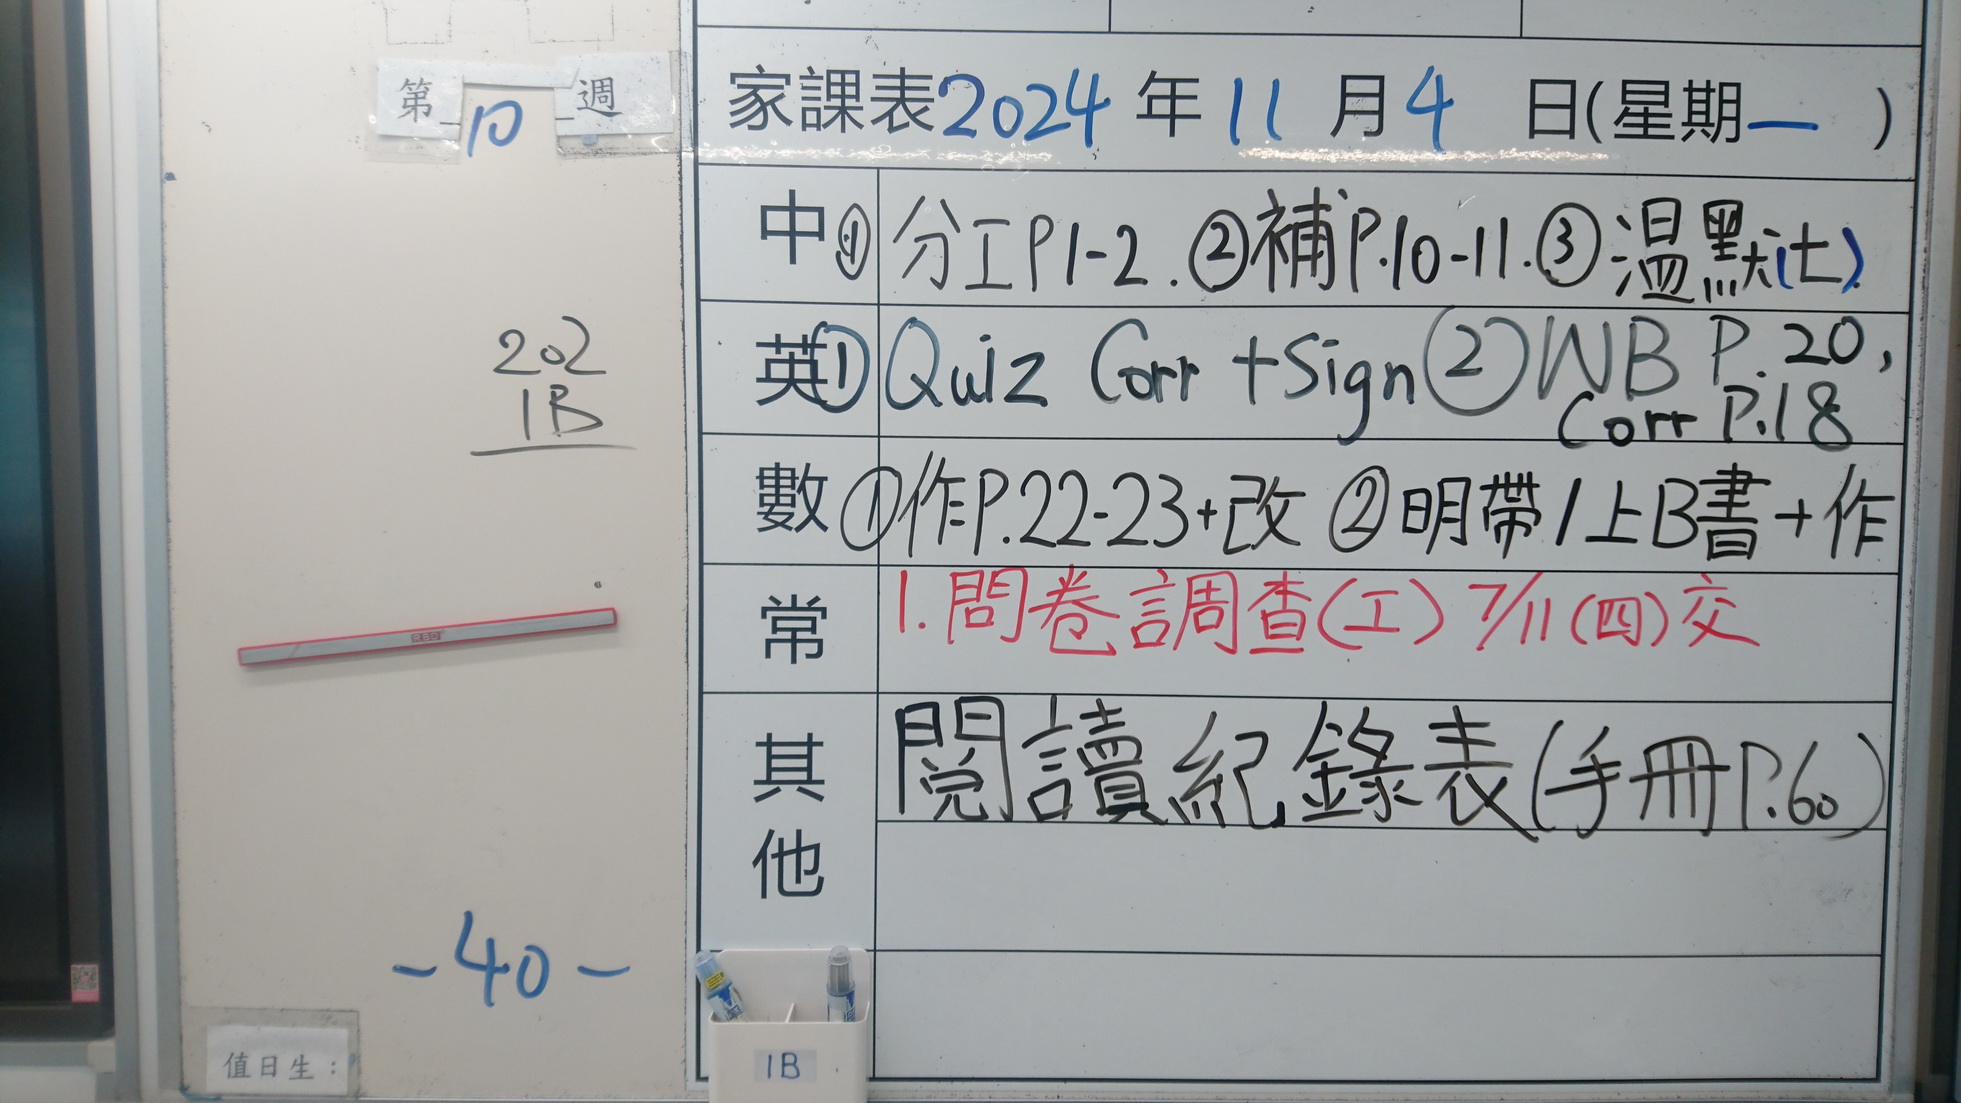 第10週
202
1B
RSD
-40-
值日生：
家課表2024年11月4日(星期一)
中①分工P1-2.②補P.10-11.③溫默(七)
英①Quiz Corr +Sign②WB P.20,
Corr P.18
數①作P.22-23+改②明帶1上B書+作
常 1.問卷調查(工) 7/11(四)交
其他 閱讀紀錄表(手冊P.60)
1B